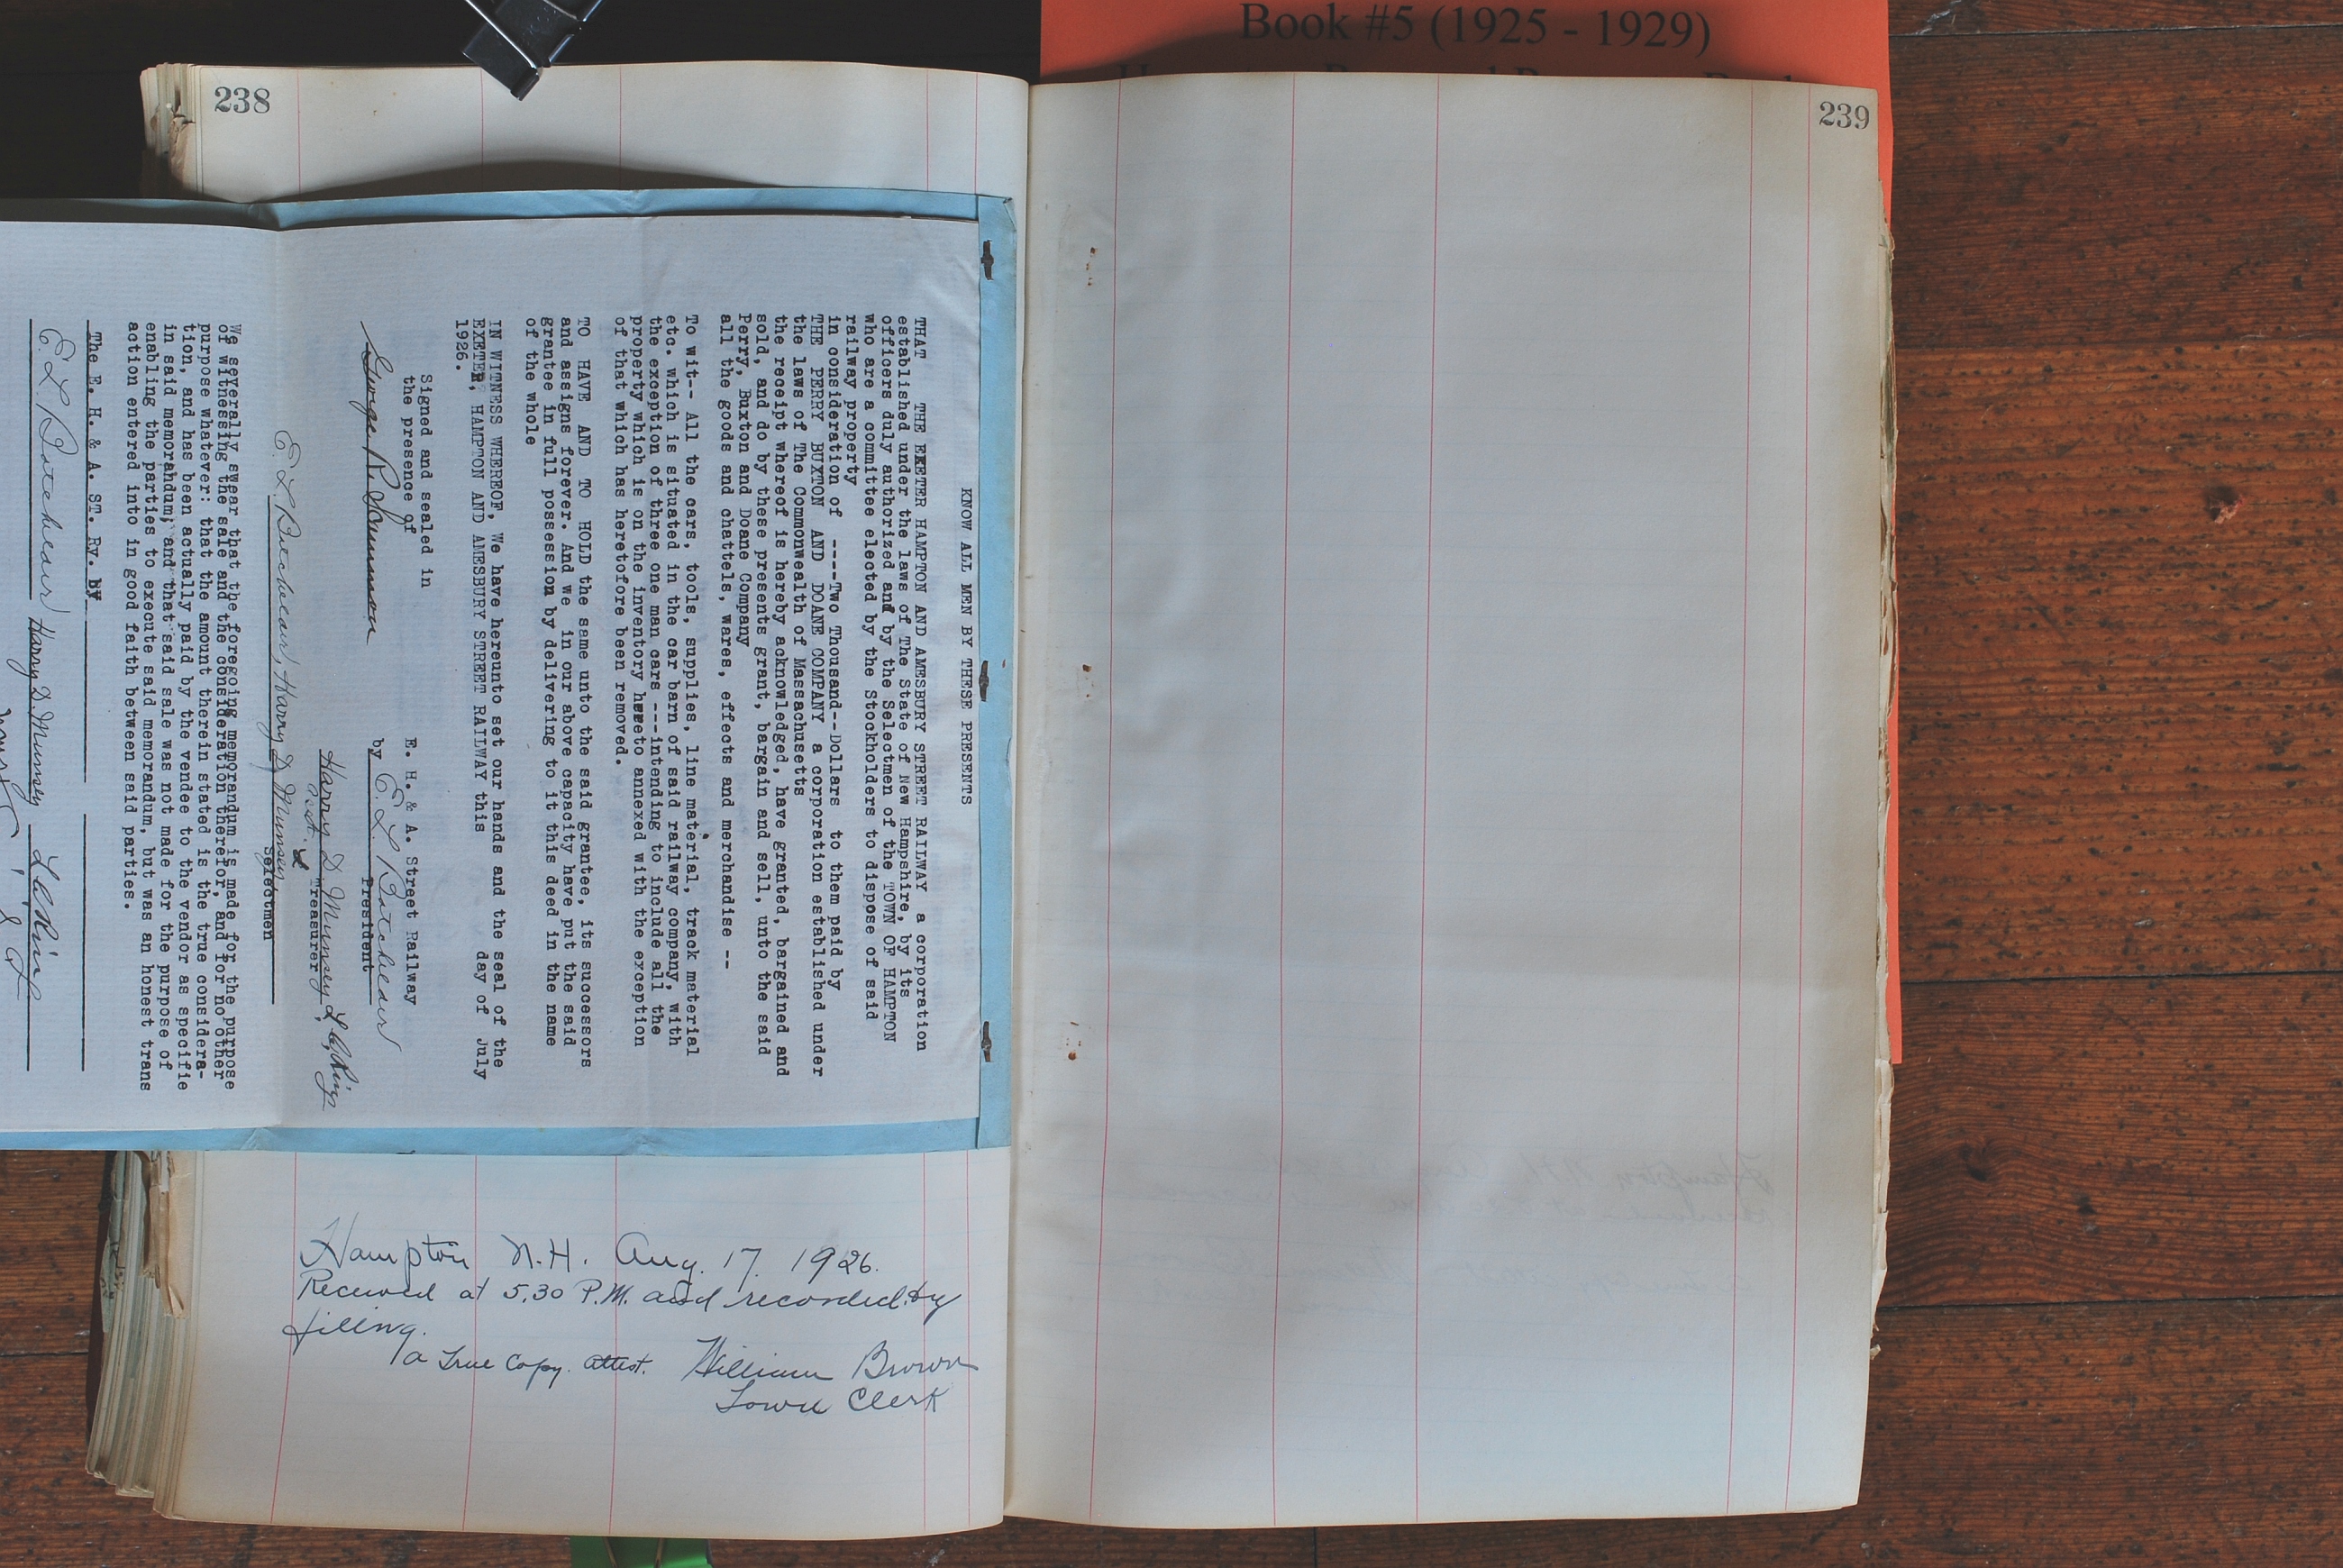 Book #5 (1925 - 1929)
238
239
KNOW ALL MEN BY THESE PRESENTS
THAT THE EXETER HAMPTON AND AMESBURY STREET RAILWAY a corporation
established under the laws of The State of New Hampshire, by its
officers duly authorized and by the Selectmen of the TOWN OF HAMPTON
who are a committee elected by the Stockholders to dispose of said
railway property
in consideration of ----Two Thousand--Dollars to them paid by
THE PERRY BUXTON AND DOANE COMPANY a corporation established under
the laws of The Commonwealth of Massachusetts
the receipt whereof is hereby acknowledged, have granted, bargained and
sold, and do by these presents grant, bargain and sell, unto the said
Perry, Buxton and Doane Company
all the goods and chattels, wares, effects and merchandise --
To wit-- All the cars, tools, supplies, line material, track material
etc. which is situated in the car barn of said railway company, with
the exception of three one man cars ---intending to include all the
property which is on the inventory hereto annexed with the exception
of that which has heretofore been removed.
TO HAVE AND TO HOLD the same unto the said grantee, its successors
and assigns forever. And we in our above capacity have put the said
grantee in full possession by delivering to it this deed in the name
of the whole
IN WITNESS WHEREOF, We have hereunto set our hands and the seal of the
EXETER, HAMPTON AND AMESBURY STREET RAILWAY this day of July
1926.
Signed and sealed in
the presence of
E. H. & A. Street Railway
by E. L. Batchelder
President
George R.
Harry D. Munsey L. C. Ring
Treasurer
E. L. Batchelder, Harry D. Munsey
Selectmen
We severally swear that the foregoing memorandum is made for the purpose
of witnessing the sale and the consideration therefor, and for no other
purpose whatever: that the amount therein stated is the true considera-
tion, and has been actually paid by the vendee to the vendor as specifie
in said memorahdum; and that said sale was not made for the purpose of
enabling the parties to execute said memorandum, but was an honest trans
action entered into in good faith between said parties.
The E. H. & A. ST. Ry. by
E. L. Batchelder Harry D. Munsey L. C. Ring
Hampton N.H. Aug. 17. 1926.
Received at 5.30 P.M. and recorded by
filing.
a True Copy. attest. William Brown
Town Clerk